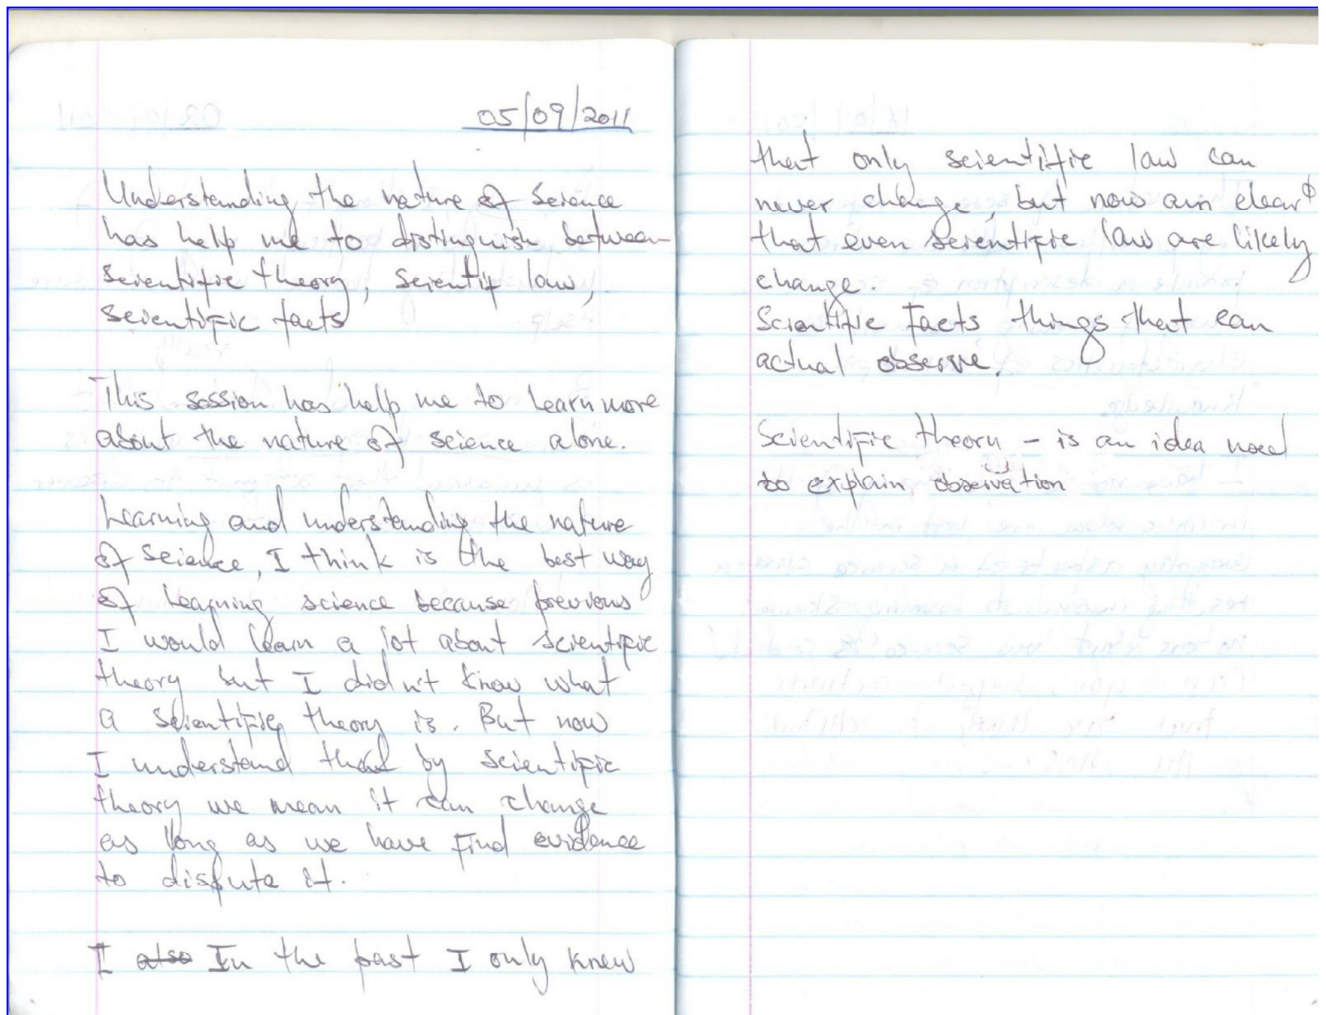 05/09/2011
Understanding the nature of science
has help me to distinguish between
scientific theory, scientif law,
scientific facts
This session has help me to learn more
about the nature of science alone.
Learning and understanding the nature
of science, I think is the best way
of learning science because previous
I would learn a lot about scientific
theory but I didn't know what
a scientific theory is. But now
I understand that by scientific
theory we mean it can change
as long as we have find evidence
to dispute it.
I also In the past I only knew
that only scientific law can
never change, but now am clear
that even scientific law are likely
change
Scientific Facts things that can
actual observe.
Scientific theory - is an idea
to explain observation